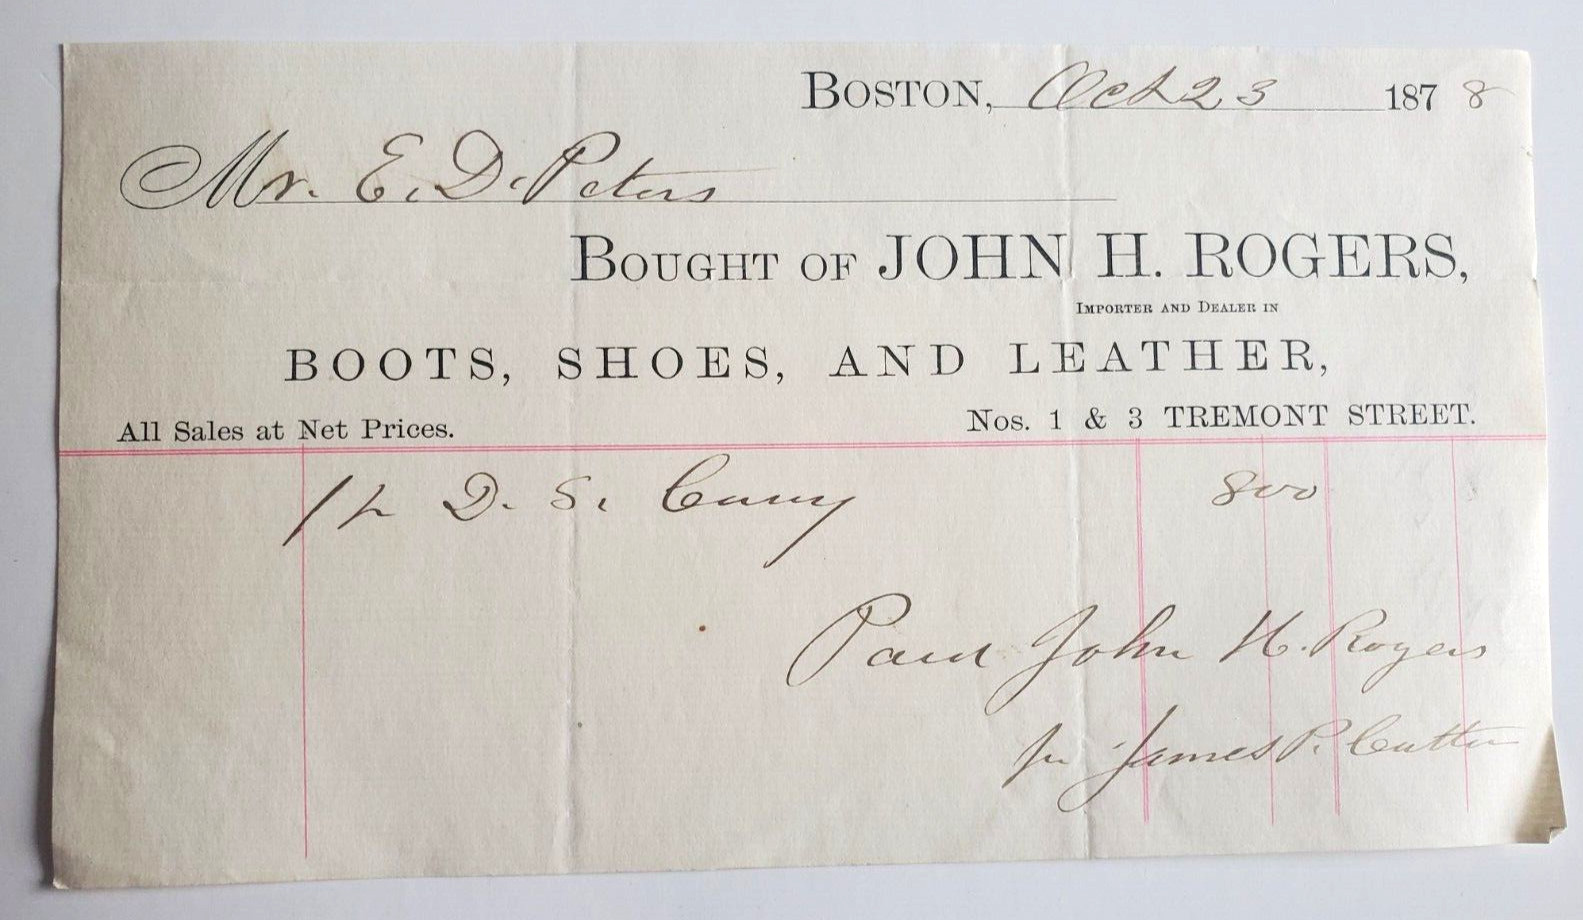 BOSTON, Oct 23 1878
Mr. E. D. Peters
BOUGHT OF JOHN H. ROGERS,
IMPORTER AND DEALER IN
BOOTS, SHOES, AND LEATHER,
All Sales at Net Prices. Nos. 1 & 3 TREMONT STREET.
D. S. 800
Paid John H. Rogers
James P. Cutter